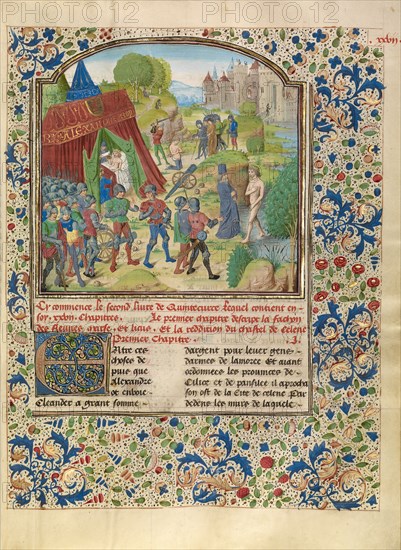 xxvii
Cy commence le second liure de Quintecurce lequel contient en
soy .xxvii. chapitre. Le premier chapitre descripe la fachon
des fleuues marse, et licus, et la reddition du chastel de celene
Premier Chapitre. .I.
Altre ces
choses de
puis que
Alexandre
ot enuoie
Cleander a grant somme
dargent pour leuer gens
darmes de lamoree Et aiant
ordonnees les prouinces de
Cilice et de panfilie il aprocha
son ost de la Cite de celene Par
dedens les murs de laquele